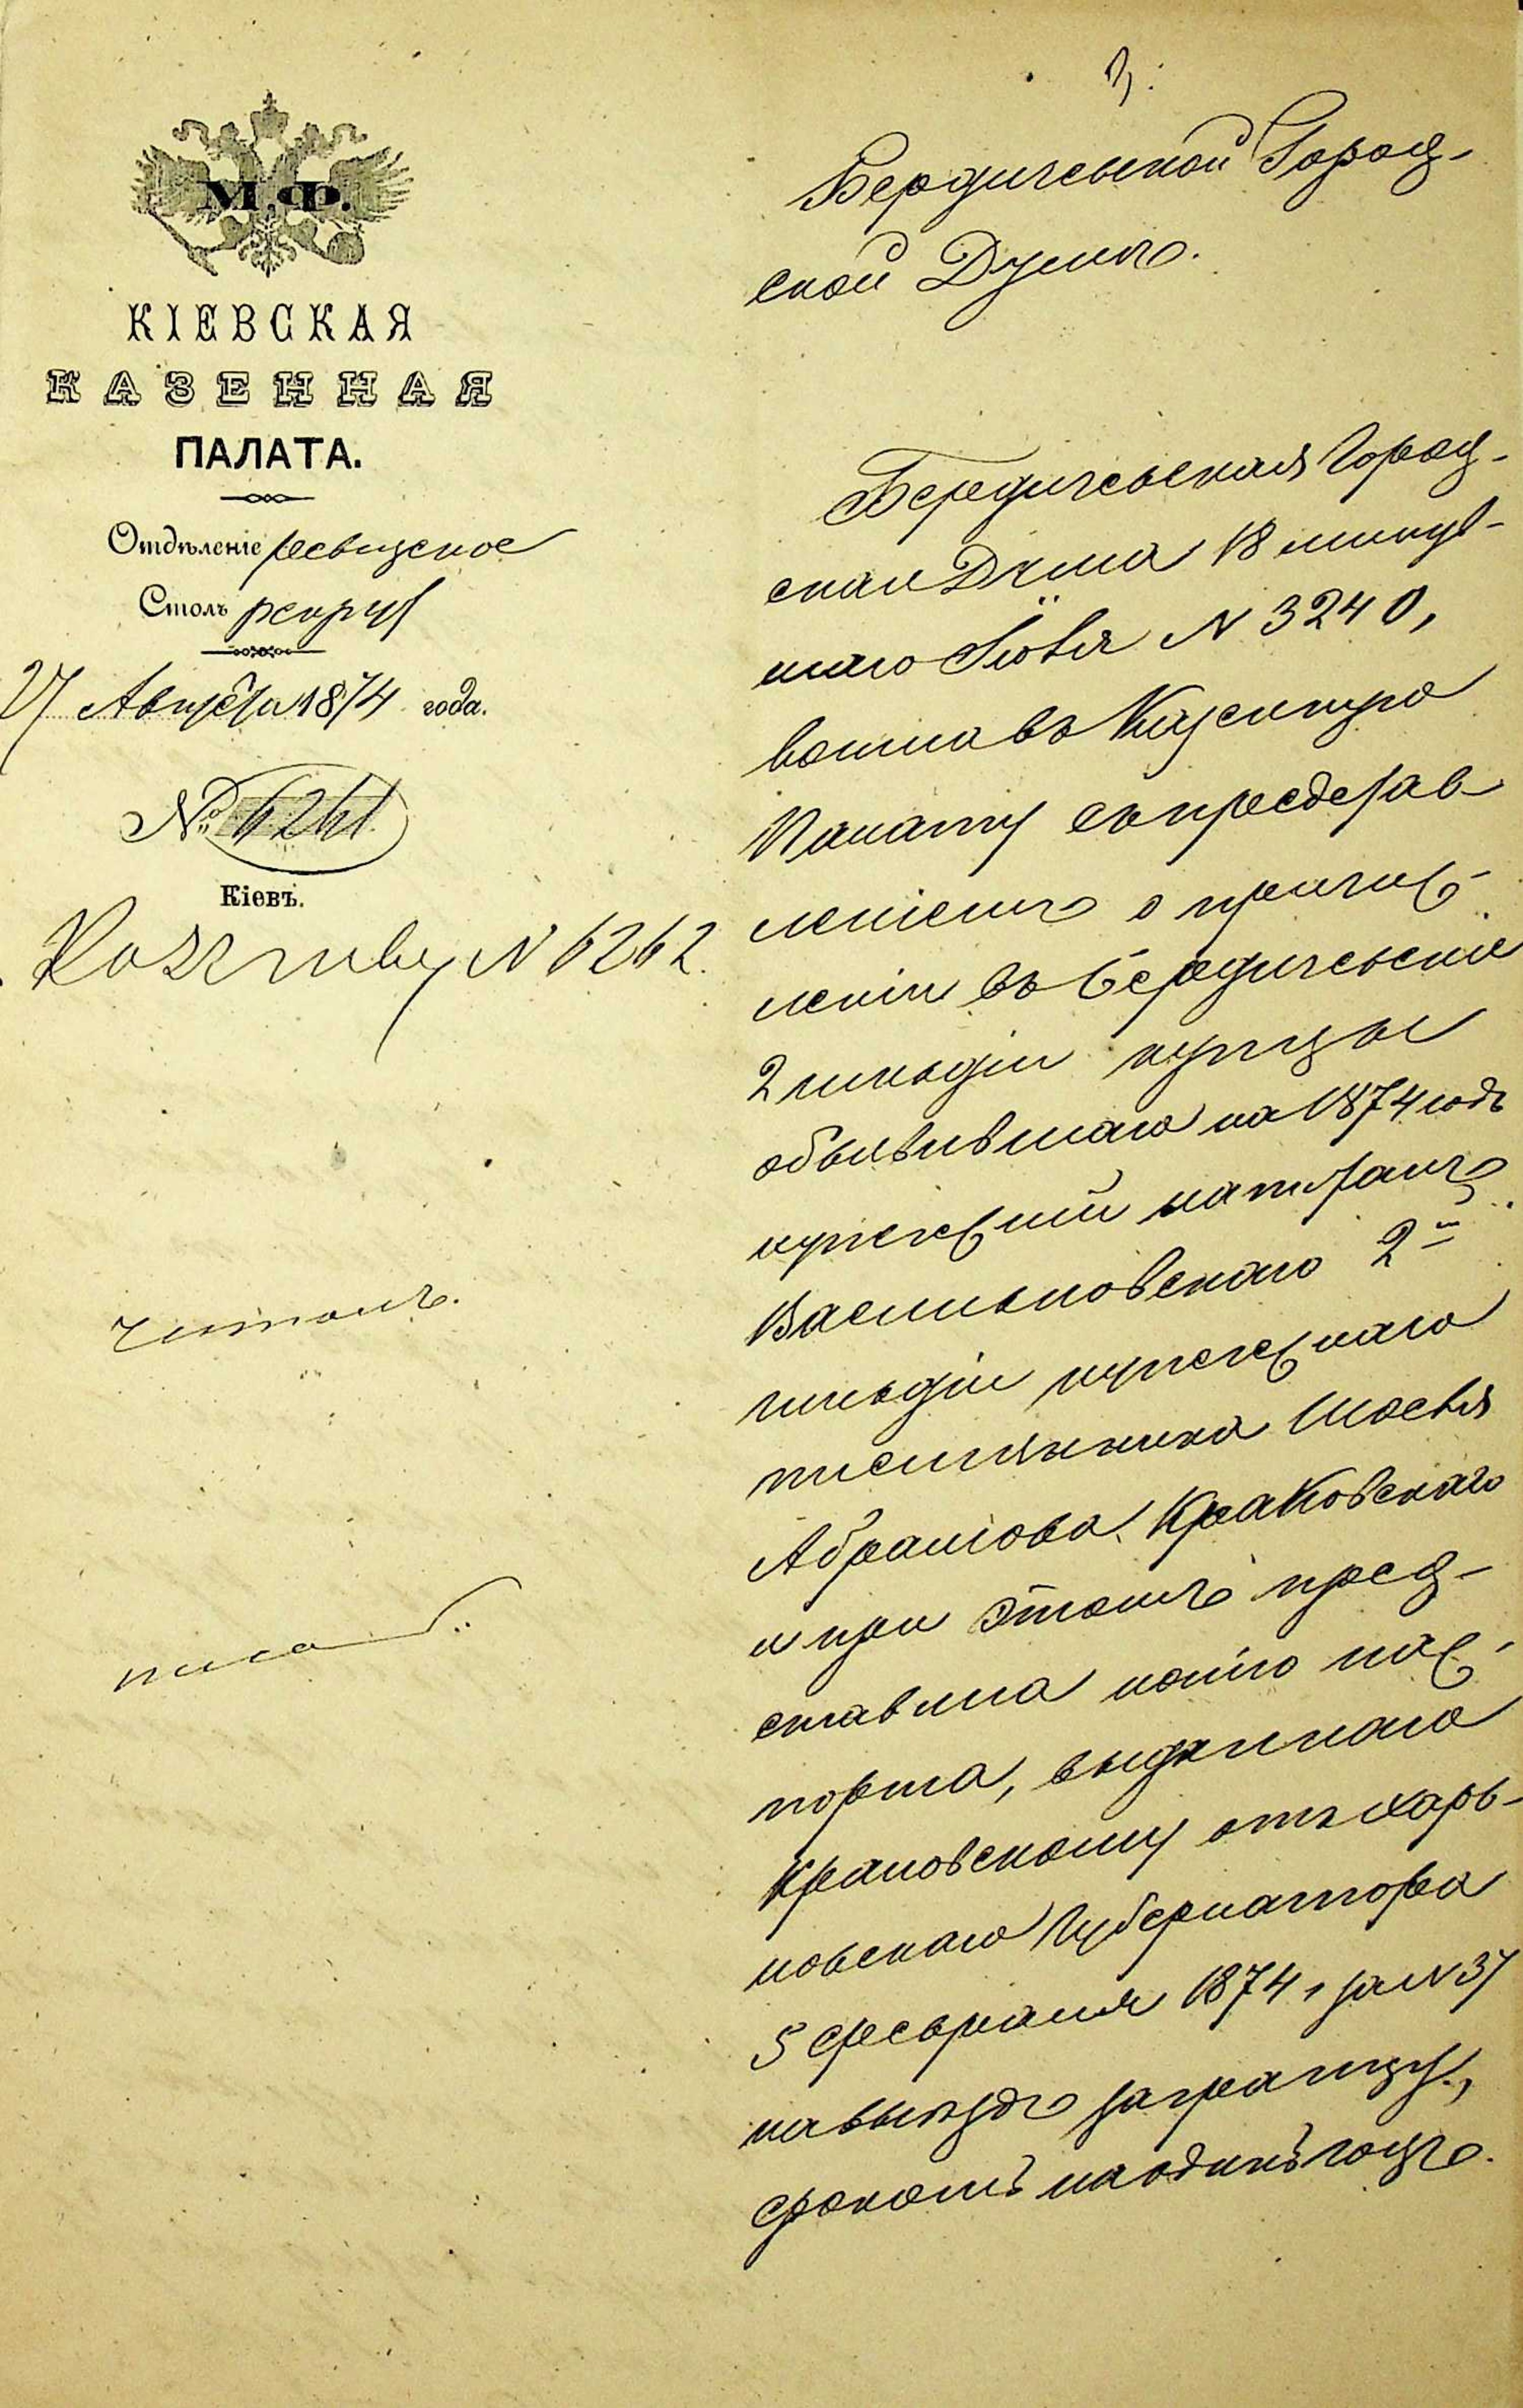 М.Ф.
КІЕВСКАЯ
КАЗЕННАЯ
ПАЛАТА.
Отдѣленіе ревизское
Столъ рекрут
27 Августа 1874 года.
№ 6261
Кіевъ.
N 6262.
читалъ.
писа
3.
Бердичевской Город-
ской Думѣ.
Бердичевская Город-
ская Дума 18 минув-
шаго Іюля N 3240,
вошла въ Казенную
Палату съ представ
леніемъ о причис-
леніи въ Бердичевскіе
2 гильдіи купцы
объявившаго на 1874 годъ
купеческій капиталъ
Васильковскаго 2й
гильдіи купеческаго
племянника
Абрамова Краковскаго
и при этомъ пред-
ставила копію пас-
порта, выданнаго
Краковскому отъ Харь-
ковскаго Губернатора
5 февраля 1874 г за N 37
на выѣздъ заграницу,
срокомъ на одинъ годъ.